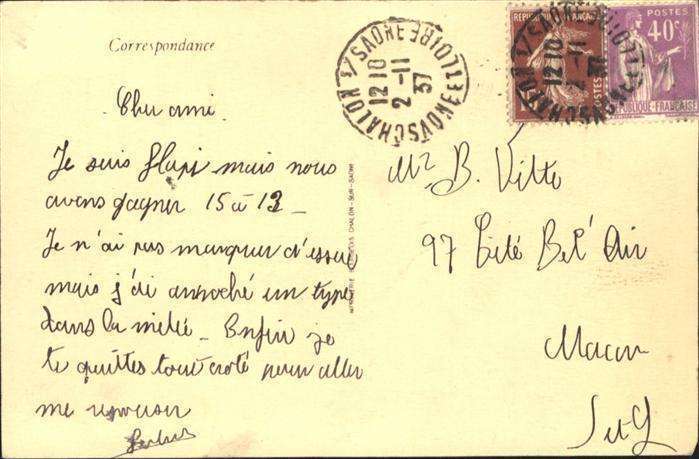 Correspondance
Cher ami
Je suis flapi mais nous
avons gagner 15 à 13_
Je n'ai pas marquer d'essai
mais j'ai amoché un type
dans la mêlé_ Enfin je
te quittes tout croté pour aller
me reposer
CHALON s/ SAONE
SAONE-ET-LOIRE
12 10
2-11
37
RÉPUBLIQUE FRANÇAISE
POSTES
40c
RÉPUBLIQUE FRANÇAISE
Mr B. Vitte
97 Cité Bel' Air
Macon
S et L